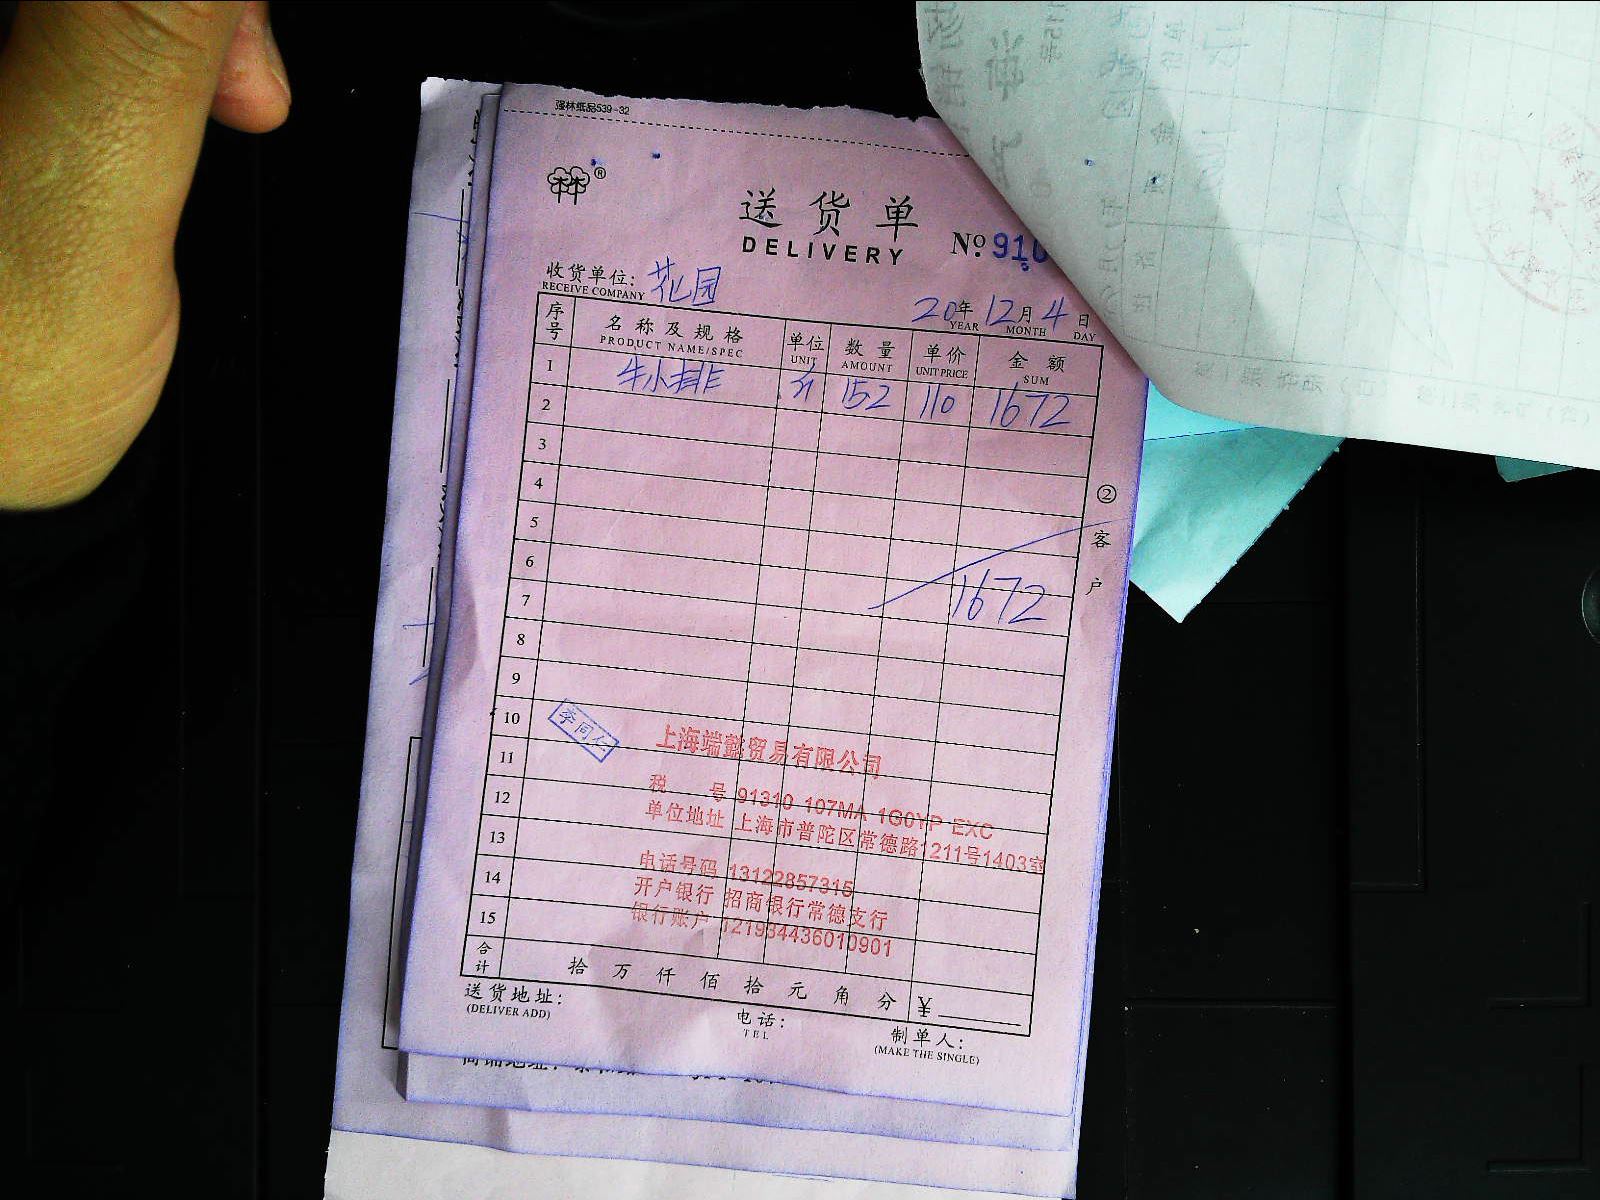 强林纸品539-32
送货单
DELIVERY
No: 910
收货单位: 花园
RECEIVE COMPANY
20年 12月 4日
YEAR MONTH DAY
序号 名称及规格 单位 数量 单价 金额
PRODUCT NAME/SPEC UNIT AMOUNT UNIT PRICE SUM
1 牛小排 152 110 1672
2
3
4
5
6
7 1672
8
9
10
11
12
13
14
15
② 客户
李同仁
上海端懿贸易有限公司
税 号 91310 107MA 1G0YP EXC
单位地址 上海市普陀区常德路1211号1403室
电话号码 13122857315
开户银行 招商银行常德支行
银行账户 121934436010901
合计 拾 万 仟 佰 拾 元 角 分 ¥
送货地址: 电话: 制单人:
(DELIVER ADD) TEL (MAKE THE SINGLE)